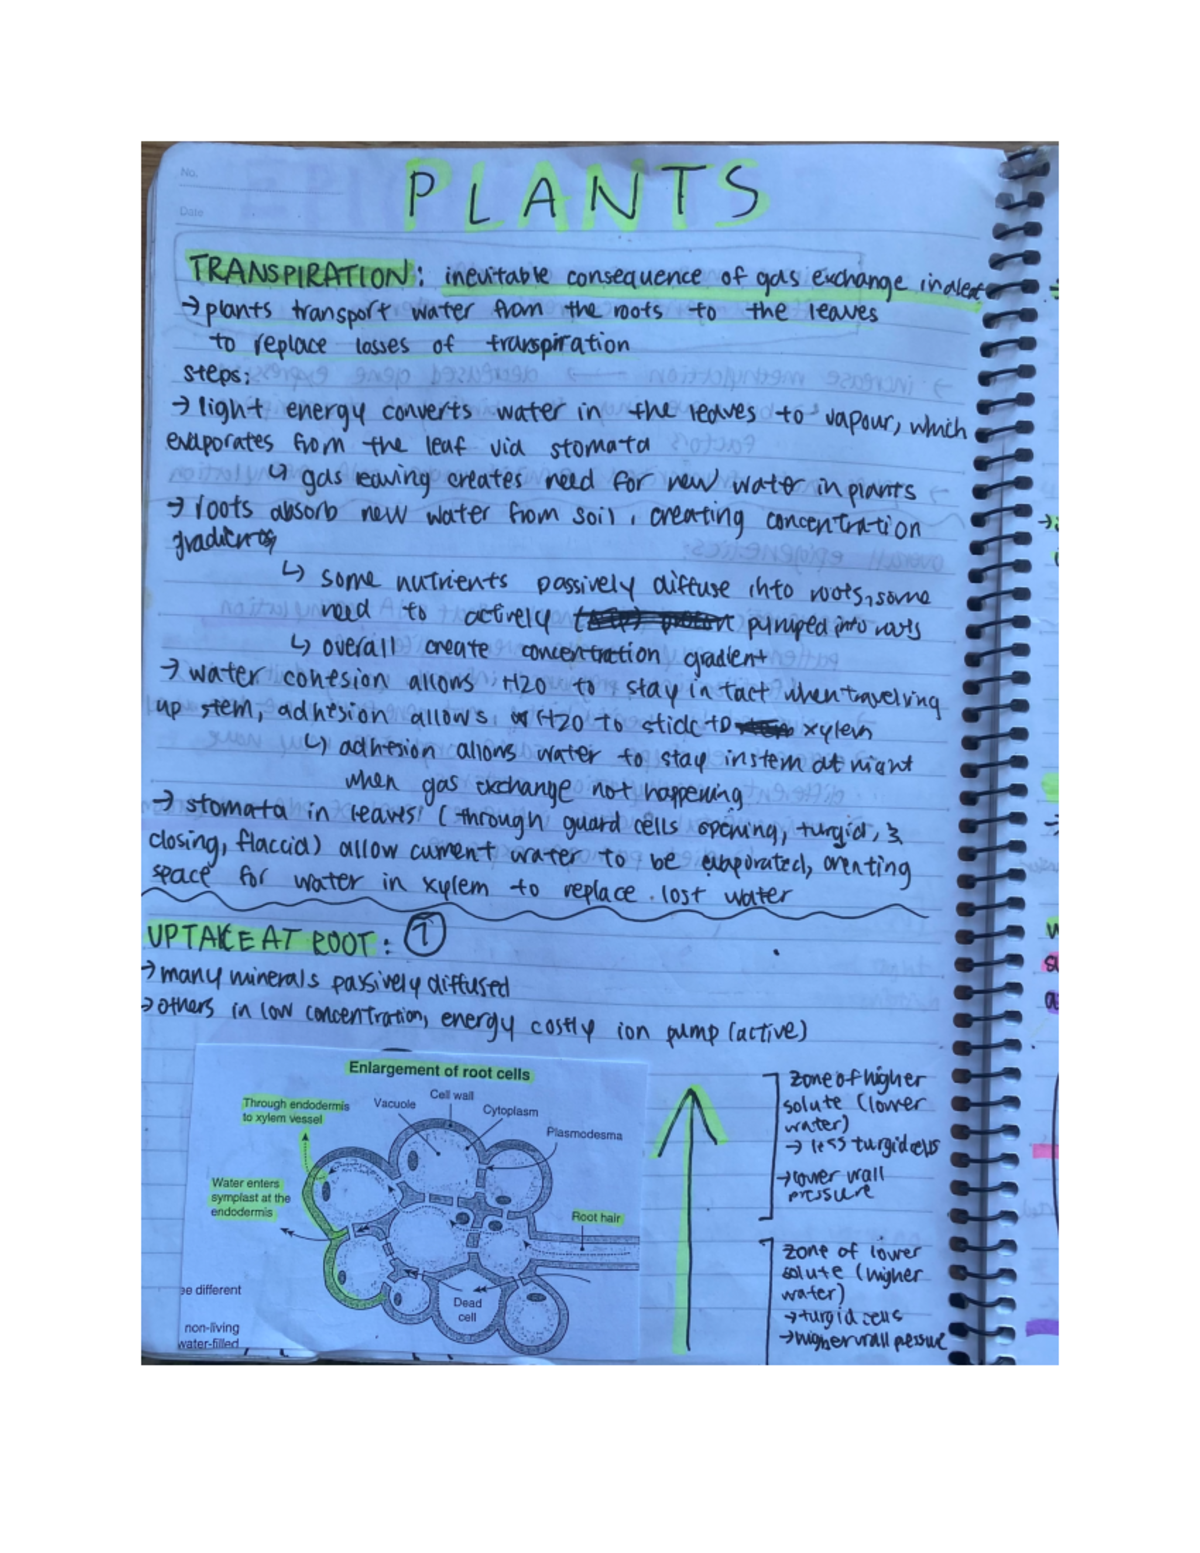 No.
Date
PLANTS
TRANSPIRATION: inevitable consequence of gas exchange in a leaf
→ plants transport water from the roots to the leaves
to replace losses of transpiration
steps:
→ light energy converts water in the leaves to vapour, which
evaporates from the leaf via stomata
↳ gas leaving creates need for new water in plants
→ roots absorb new water from soil, creating concentration
gradients
↳ some nutrients passively diffuse into roots, some
need to actively pumped into roots
↳ overall create concentration gradient
→ water cohesion allows H2O to stay in tact when travelving
up stem, adhesion allows H2O to stick to xylem
↳ adhesion allows water to stay in stem at night
when gas exchange not happening
→ stomata in leaves (through guard cells opening, turgid, &
closing, flaccid) allow current water to be evaporated, creating
space for water in xylem to replace lost water
UPTAKE AT ROOT: ①
→ many minerals passively diffused
→ others in low concentration, energy costly ion pump (active)
Enlargement of root cells
Through endodermis
to xylem vessel
Vacuole
Cell wall
Cytoplasm
Plasmodesma
Water enters
symplast at the
endodermis
Root hair
Dead
cell
e different
non-living
water-filled
zone of higher
solute (lower
water)
→ less turgid cells
→ lower wall
pressure
zone of lower
solute (higher
water)
→ turgid cells
→ higher wall pessue